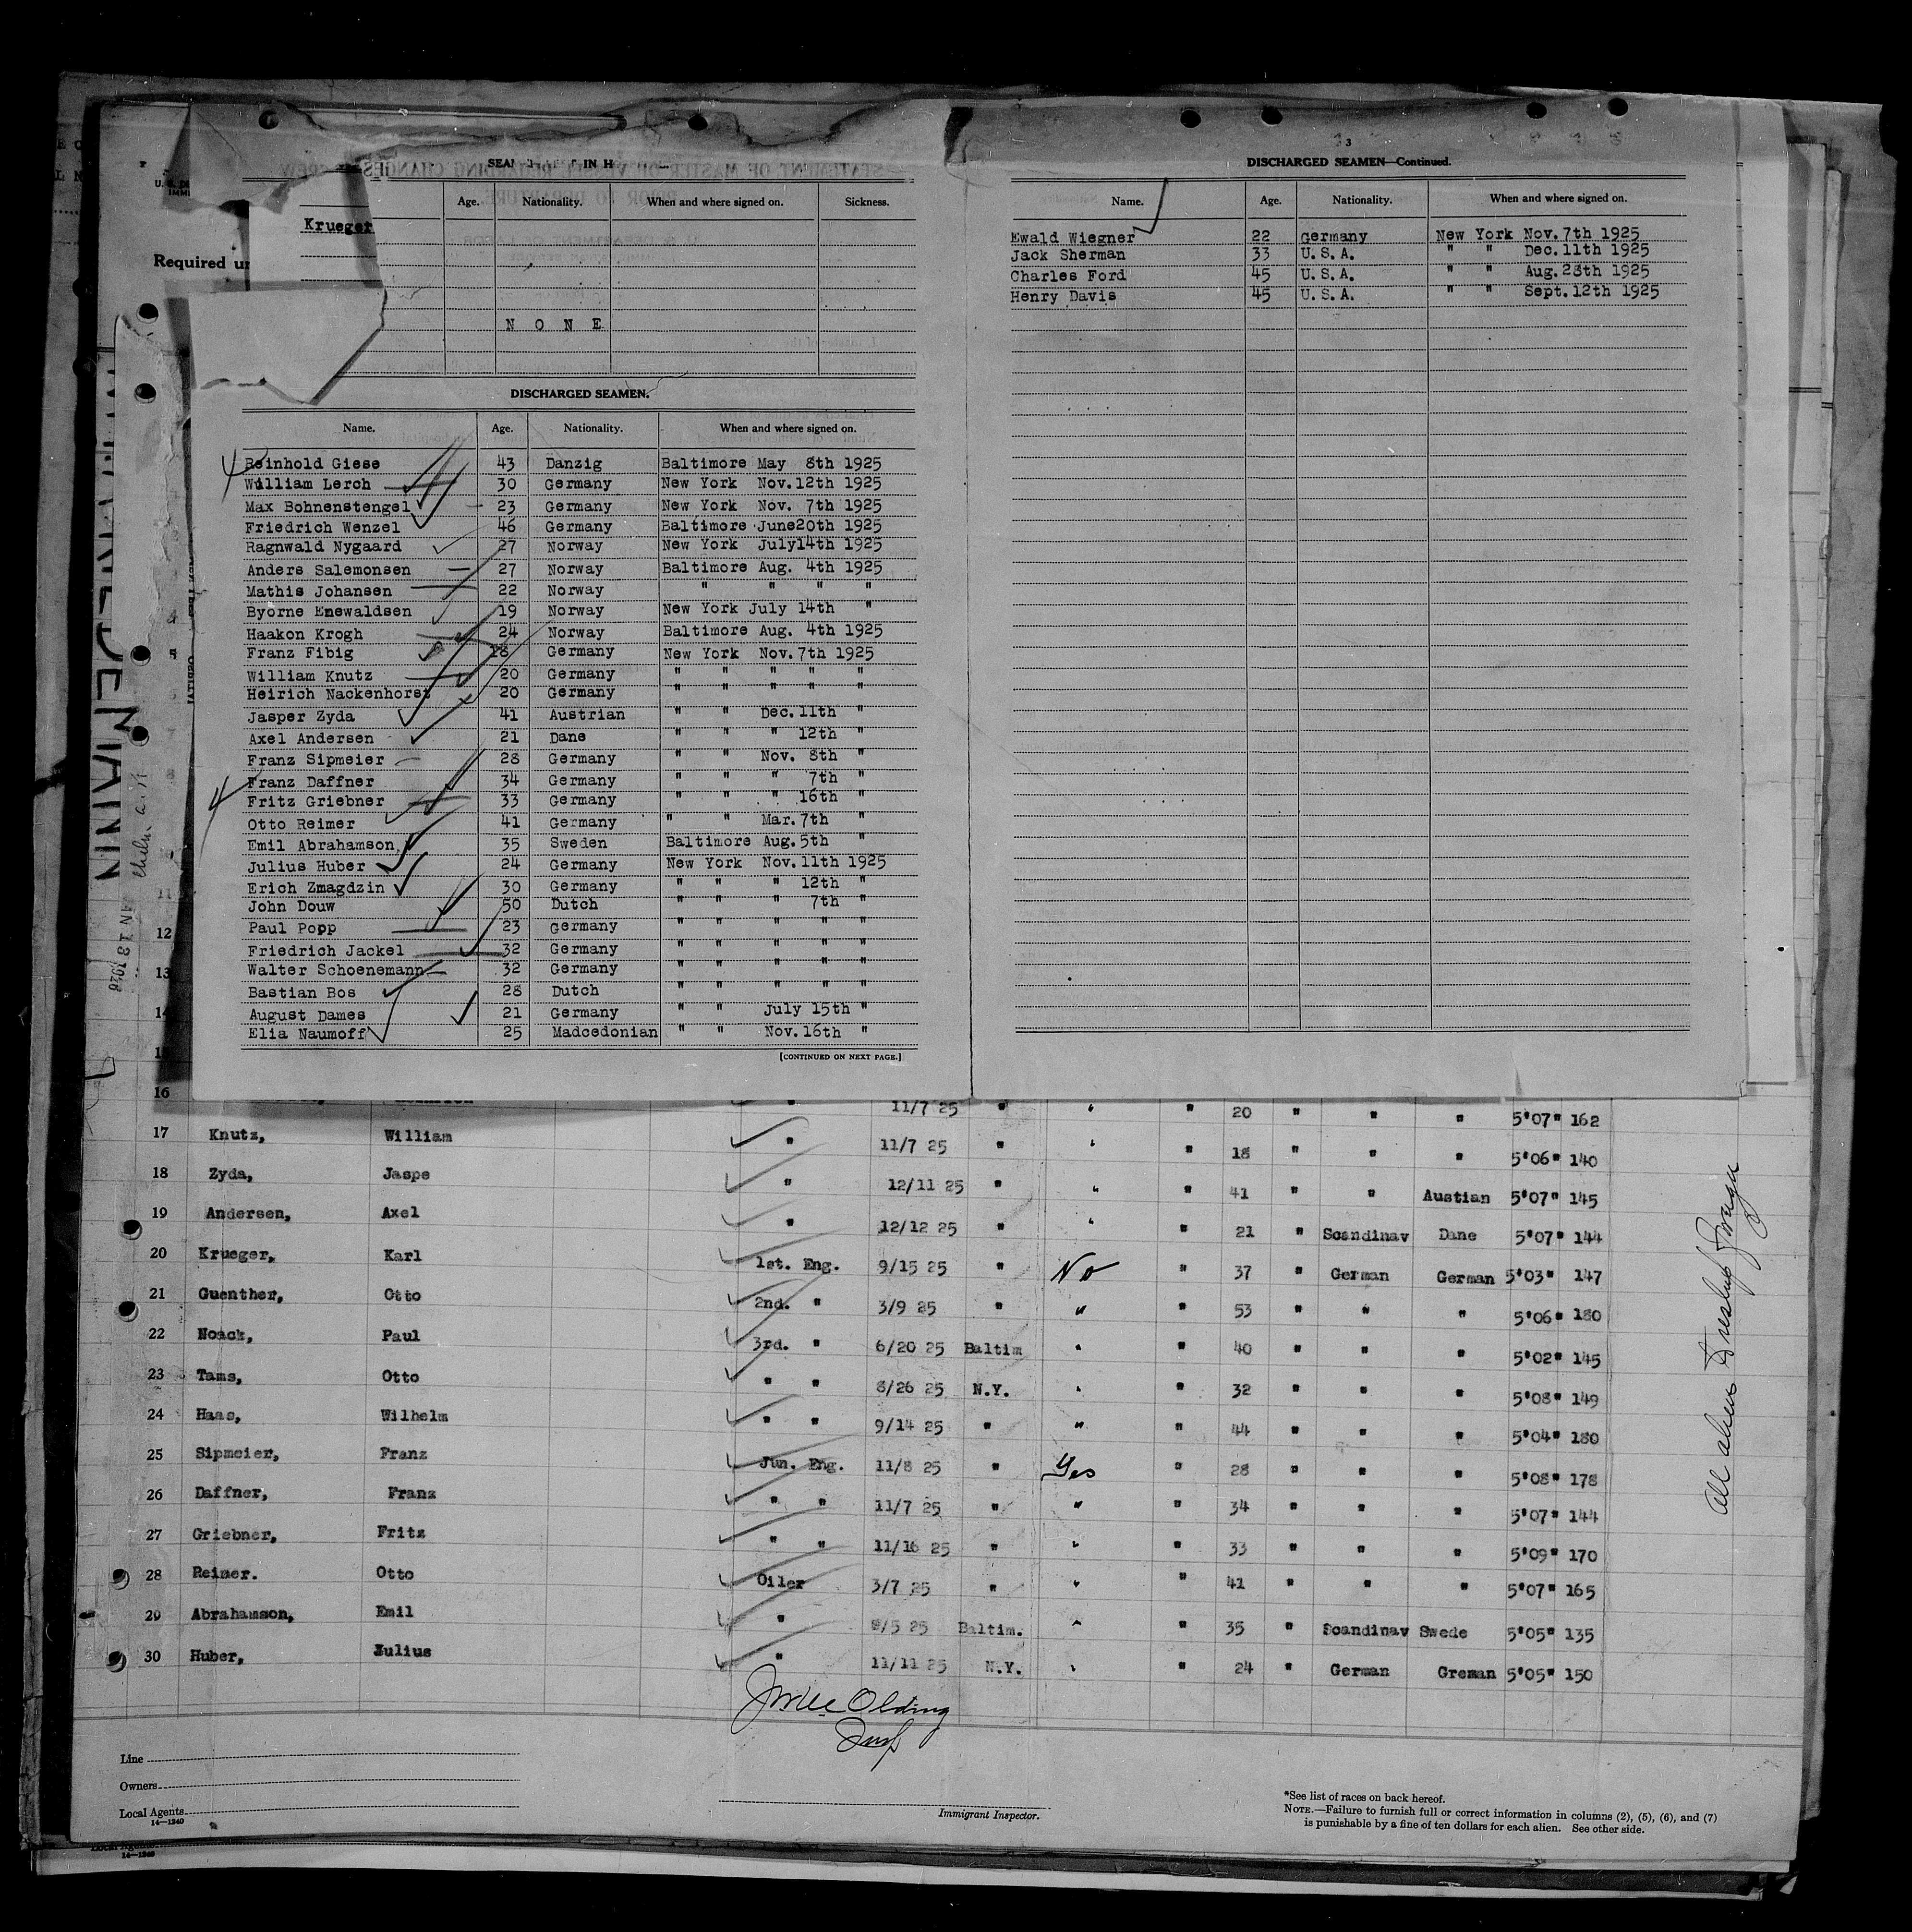 SEA IN H
Age. Nationality. When and where signed on. Sickness.
Krueger
Required un
N O N E
DISCHARGED SEAMEN.
Name. Age. Nationality. When and where signed on.
Reinhold Giese 43 Danzig Baltimore May 8th 1925
William Lerch 30 Germany New York Nov.12th 1925
Max Bohnenstengel 23 Germany New York Nov. 7th 1925
Friedrich Wenzel 46 Germany Baltimore June20th 1925
Ragnwald Nygaard 27 Norway New York July14th 1925
Anders Salemonsen 27 Norway Baltimore Aug. 4th 1925
Mathis Johansen 22 Norway " " " "
Byorne Enewaldsen 19 Norway New York July 14th "
Haakon Krogh 24 Norway Baltimore Aug. 4th 1925
Franz Fibig 18 Germany New York Nov.7th 1925
William Knutz 20 Germany " " " " "
Heirich Nackenhorst 20 Germany " " " " "
Jasper Zyda 41 Austrian " " Dec.11th "
Axel Andersen 21 Dane " " " 12th "
Franz Sipmeier 28 Germany " " Nov. 8th "
Franz Daffner 34 Germany " " " 7th "
Fritz Griebner 33 Germany " " " 16th "
Otto Reimer 41 Germany " " Mar.7th "
Emil Abrahamson, 35 Sweden Baltimore Aug.5th "
Julius Huber 24 Germany New York Nov.11th 1925
Erich Zmagdzin 30 Germany " " " 12th "
John Douw 50 Dutch " " " 7th "
Paul Popp 23 Germany " " " " "
Friedrich Jackel 32 Germany " " " " "
Walter Schoenemann 32 Germany " " " " "
Bastian Bos 28 Dutch " " " " "
August Dames 21 Germany " " July 15th "
Elia Naumoff 25 Madcedonian " " Nov.16th "
[CONTINUED ON NEXT PAGE.]
3
DISCHARGED SEAMEN—Continued.
Name. Age. Nationality. When and where signed on.
Ewald Wiegner 22 Germany New York Nov.7th 1925
Jack Sherman 33 U.S.A. " " Dec.11th 1925
Charles Ford 45 U.S.A. " " Aug.28th 1925
Henry Davis 45 U.S.A. " " Sept.12th 1925
16 11/7 25 " " " 20 " " " 5'07" 162
17 Knutz, William " 11/7 25 " " " 18 " " " 5'06" 140
18 Zyda, Jaspe " 12/11 25 " " " 41 " " Austian 5'07" 145
19 Andersen, Axel " 12/12 25 " " " 21 " Scandinav Dane 5'07" 144
20 Krueger, Karl 1st. Eng. 9/15 25 " No " 37 " German German 5'03" 147
21 Guenther, Otto 2nd. " 3/9 25 " " " 53 " " " 5'06" 180
22 Noack, Paul 3rd. " 6/20 25 Baltim " " 40 " " " 5'02" 145
23 Tams, Otto " " 8/26 25 N.Y. " " 32 " " " 5'08" 149
24 Haas, Wilhelm " " 9/14 25 " " " 44 " " " 5'04" 180
25 Sipmeier, Franz Jun. Eng. 11/8 25 " Yes " 28 " " " 5'08" 178
26 Daffner, Franz " " 11/7 25 " " " 34 " " " 5'07" 144
27 Griebner, Fritz " " 11/16 25 " " " 33 " " " 5'09" 170
28 Reimer. Otto Oiler 3/7 25 " " " 41 " " " 5'07" 165
29 Abrahamson, Emil " 8/5 25 Baltim. " " 35 " Scandinav Swede 5'05" 135
30 Huber, Julius " 11/11 25 N.Y. " " 24 " German Greman 5'05" 150
All aliens
Olding
Insp
Line
Owners
Local Agents
14—1240
Immigrant Inspector.
*See list of races on back hereof.
NOTE.—Failure to furnish full or correct information in columns (2), (5), (6), and (7)
is punishable by a fine of ten dollars for each alien. See other side.